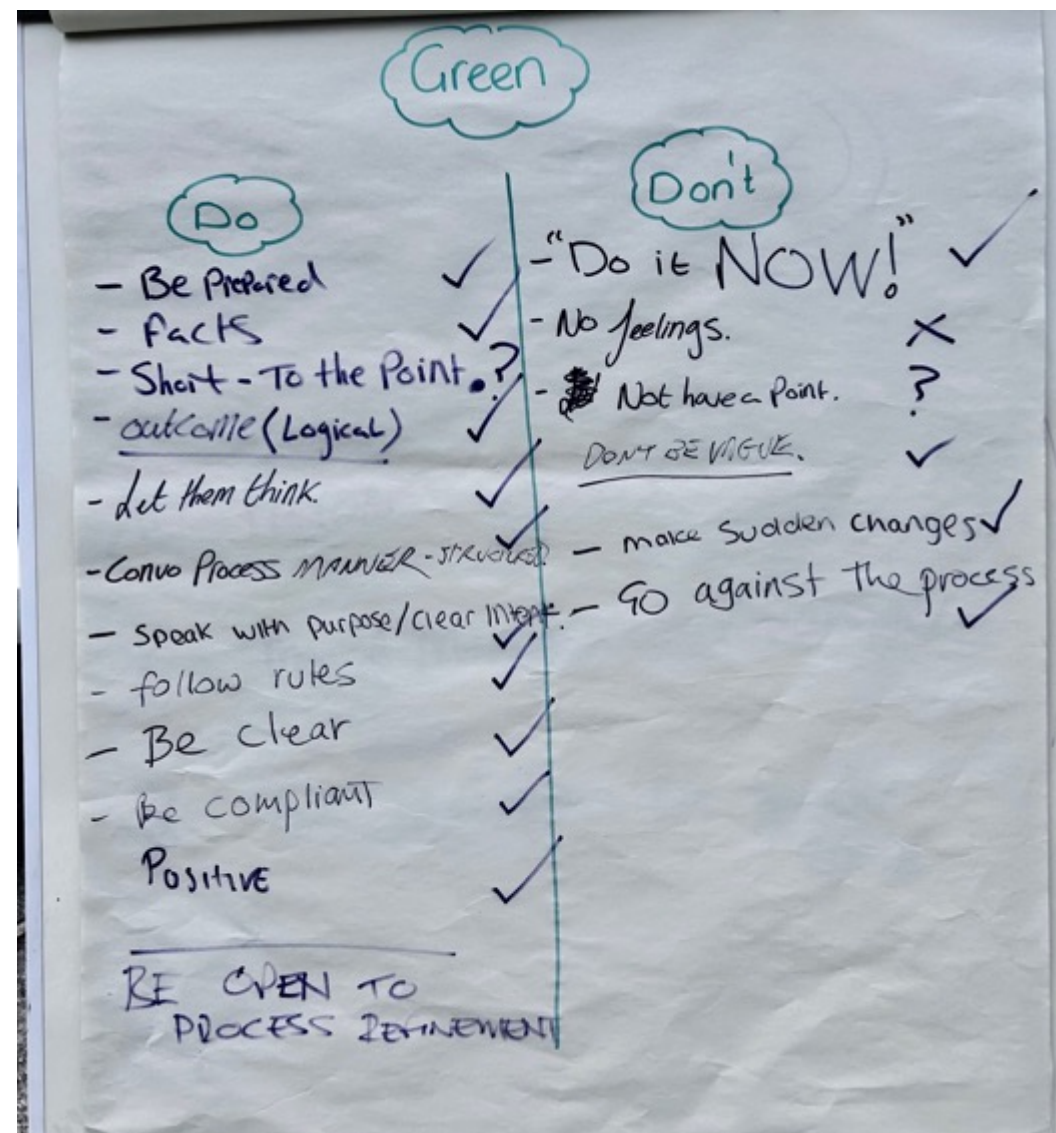 Green
Do
- Be Prepared ✓
- facts ✓
- Short - To the Point. ?
- outcome (Logical) ✓
- Let them think. ✓
- Convo Process MANNER - STRUCTURED. ✓
- Speak with purpose/clear Intent. ✓
- follow rules ✓
- Be clear ✓
- Be compliant ✓
Positive ✓
BE OPEN TO
PROCESS REFINEMENT
Don't
- "Do it NOW!" ✓
- No feelings. ✗
- Not have a Point. ?
DON'T BE VAGUE. ✓
- make Sudden changes ✓
- Go against the process ✓